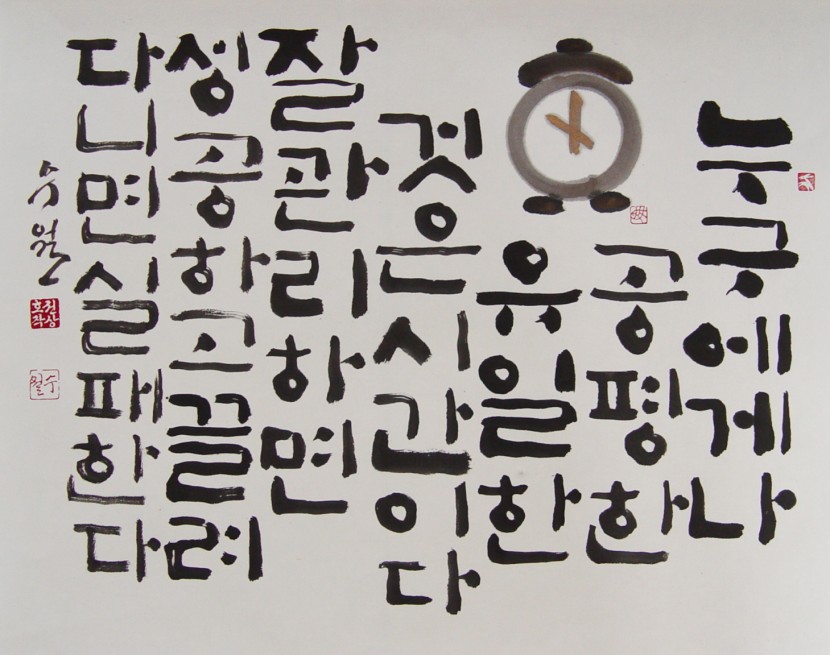 누구에게나
공평한
유일한
것은시간이다
잘관리하면
성공하고끌려
다니면실패한다
수월
권상
호작
수월